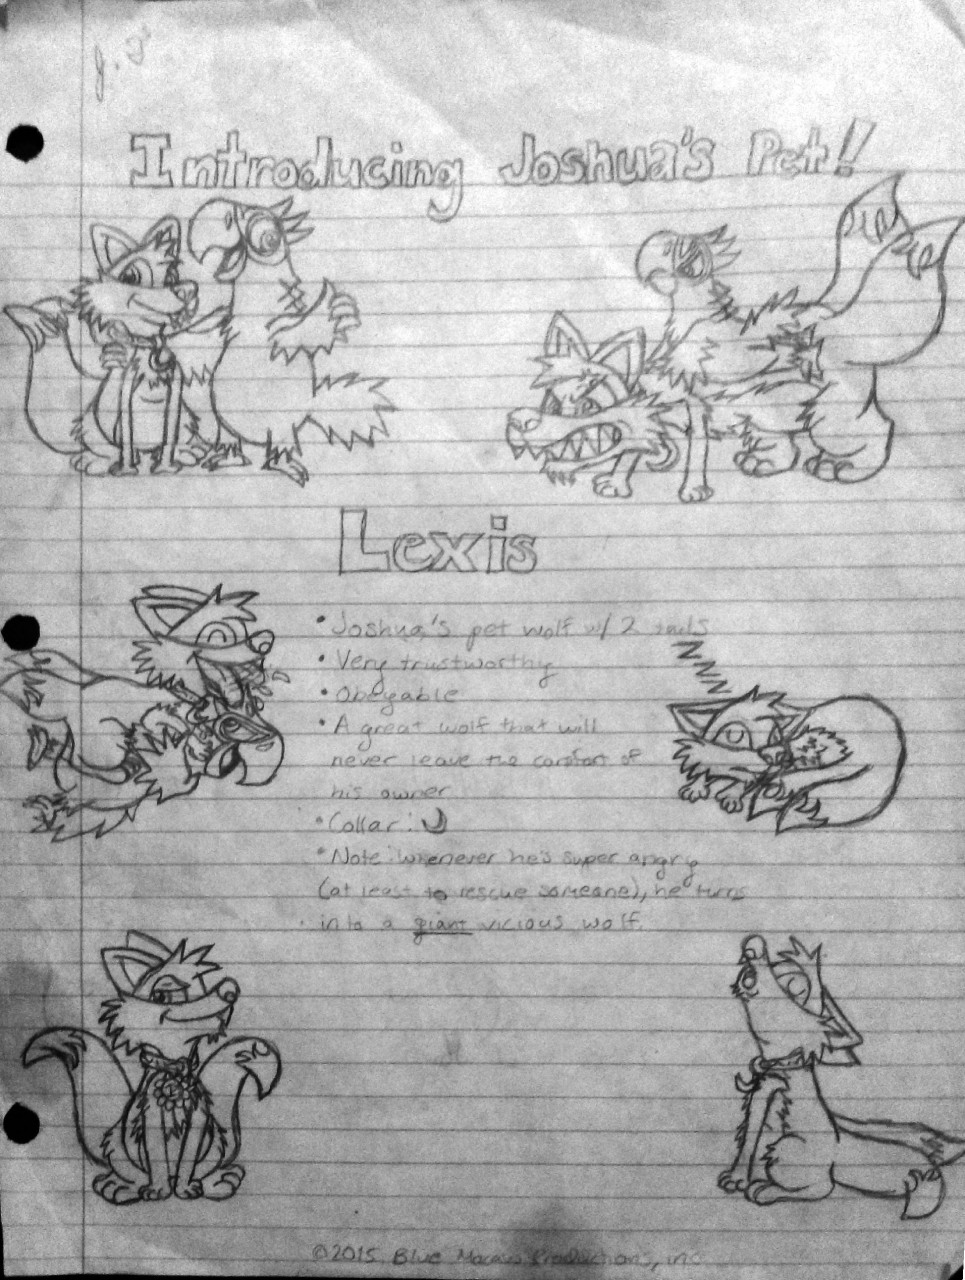 J.J
Introducing Joshua's Pet!
Lexis
• Joshua's pet wolf w/ 2 tails
• Very trustworthy
• Obeyable
• A great wolf that will
never leave the comfort of
his owner
• Collar:
• Note: whenever he's super angry
(at least to rescue someone), he turns
into a giant vicious wolf.
©2015 Blue Macaw Productions, inc